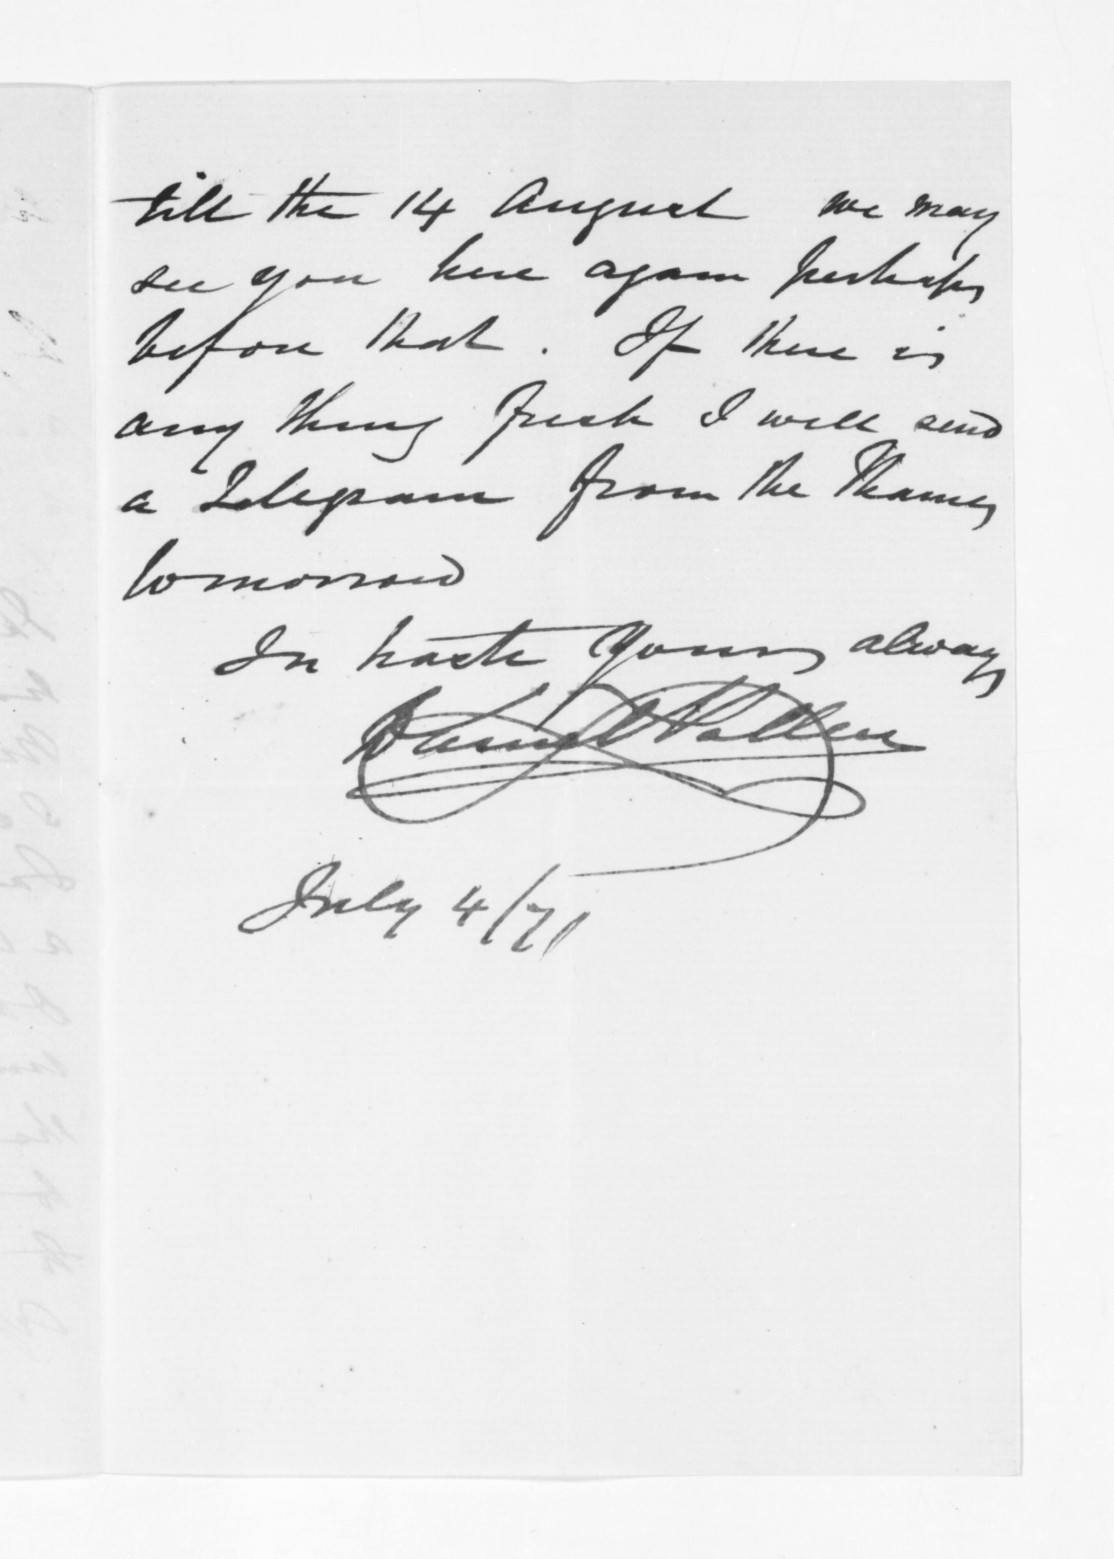 till the 14 August we may
see you here again perhaps
before that. If there is
any thing fresh I will send
a Telegram from the Thames
tomorrow
In haste Yours always
Daniel Pollen
July 4/71